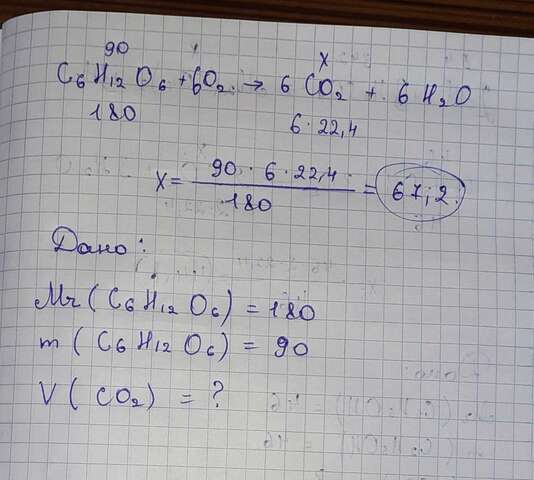 90
x
C6H12O6 + 6O2 → 6 CO2 + 6 H2O
180
6 · 22,4
x = 90 · 6 · 22,4 / 180 = 67,2
Дано:
Mr ( C6H12O6 ) = 180
m ( C6H12O6 ) = 90
V ( CO2 ) = ?